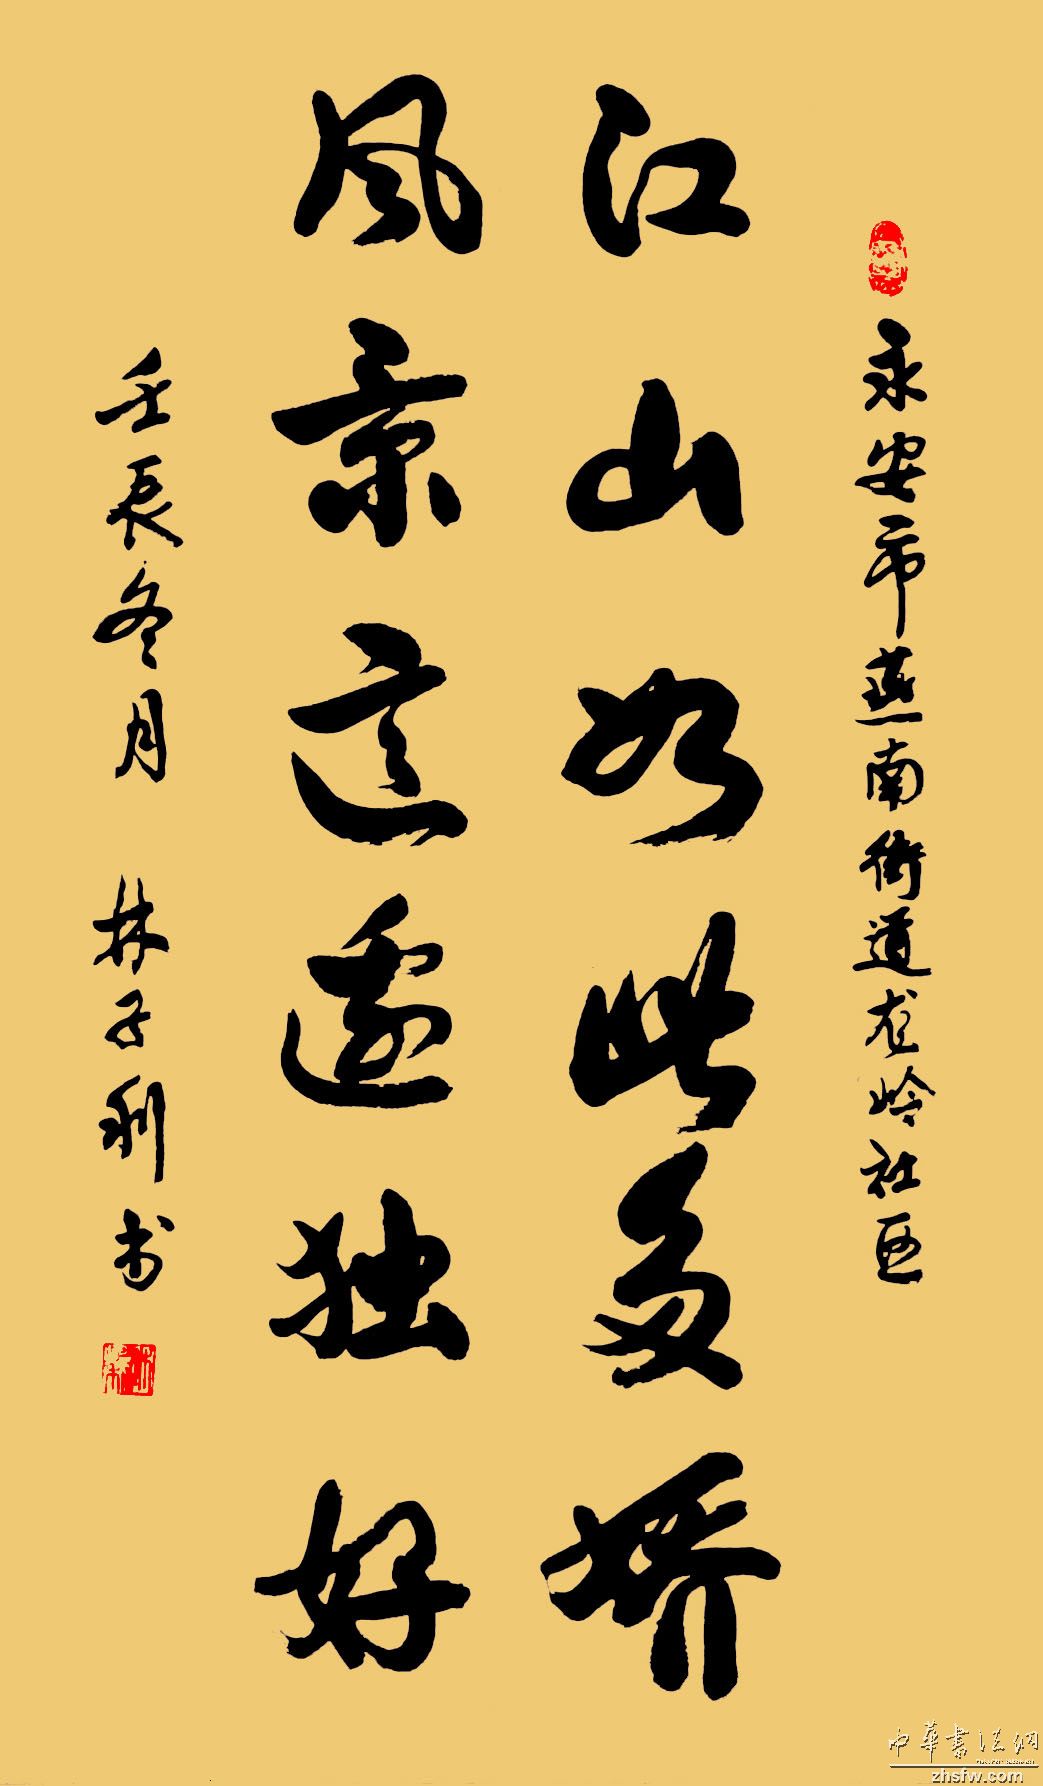 永安市燕南街道龙岭社区
江山如此多娇
风景这边独好
壬辰冬月 林子利书
中华书法网
zhsfw.com